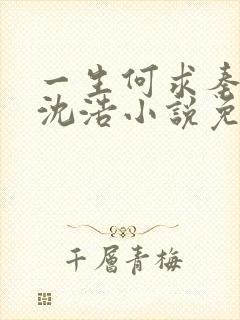 一生何求秦
沈浩小説免
千層青梅